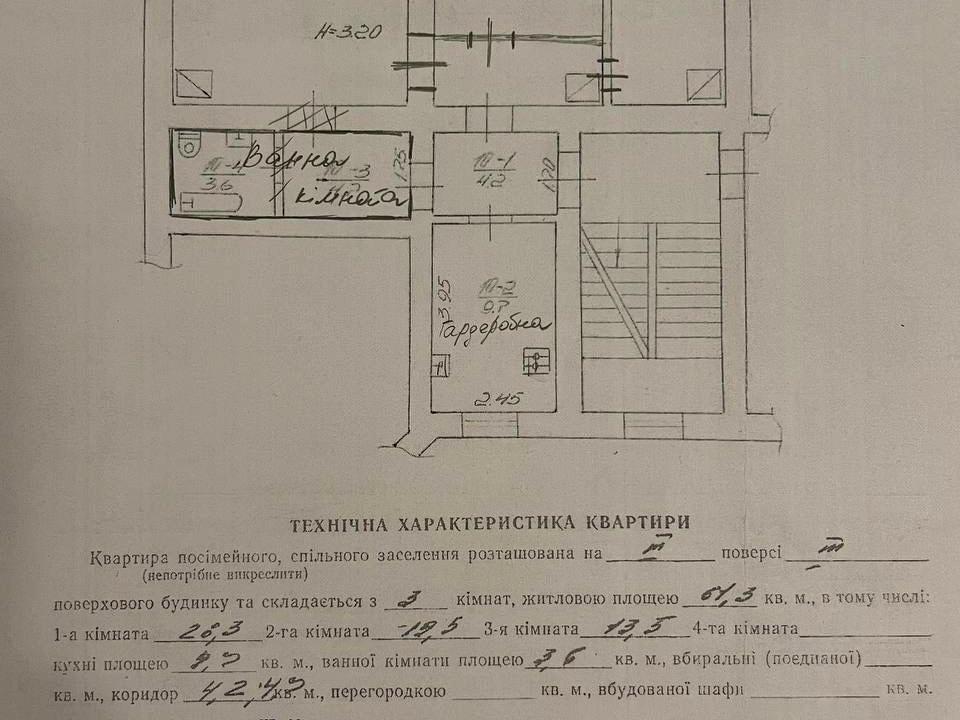 H=3.20
Ванна
3.6
-3
кімната
1.75
III-1
4.2
1.70
3.95
III-2
9.7
Гардеробна
2.45
ТЕХНІЧНА ХАРАКТЕРИСТИКА КВАРТИРИ
Квартира посімейного, спільного заселення розташована на III поверсі III
(непотрібне викреслити)
поверхового будинку та складається з 3 кімнат, житловою площею 61,3 кв. м., в тому числі:
1-а кімната 28,3 2-га кімната 19,5 3-я кімната 13,5 4-та кімната
кухні площею 9,7 кв. м., ванної кімнати площею 3,6 кв. м., вбиральні (поєднаної)
кв. м., коридор 4,2, 4,7 кв. м., перегородкою кв. м., вбудованої шафи кв. м.